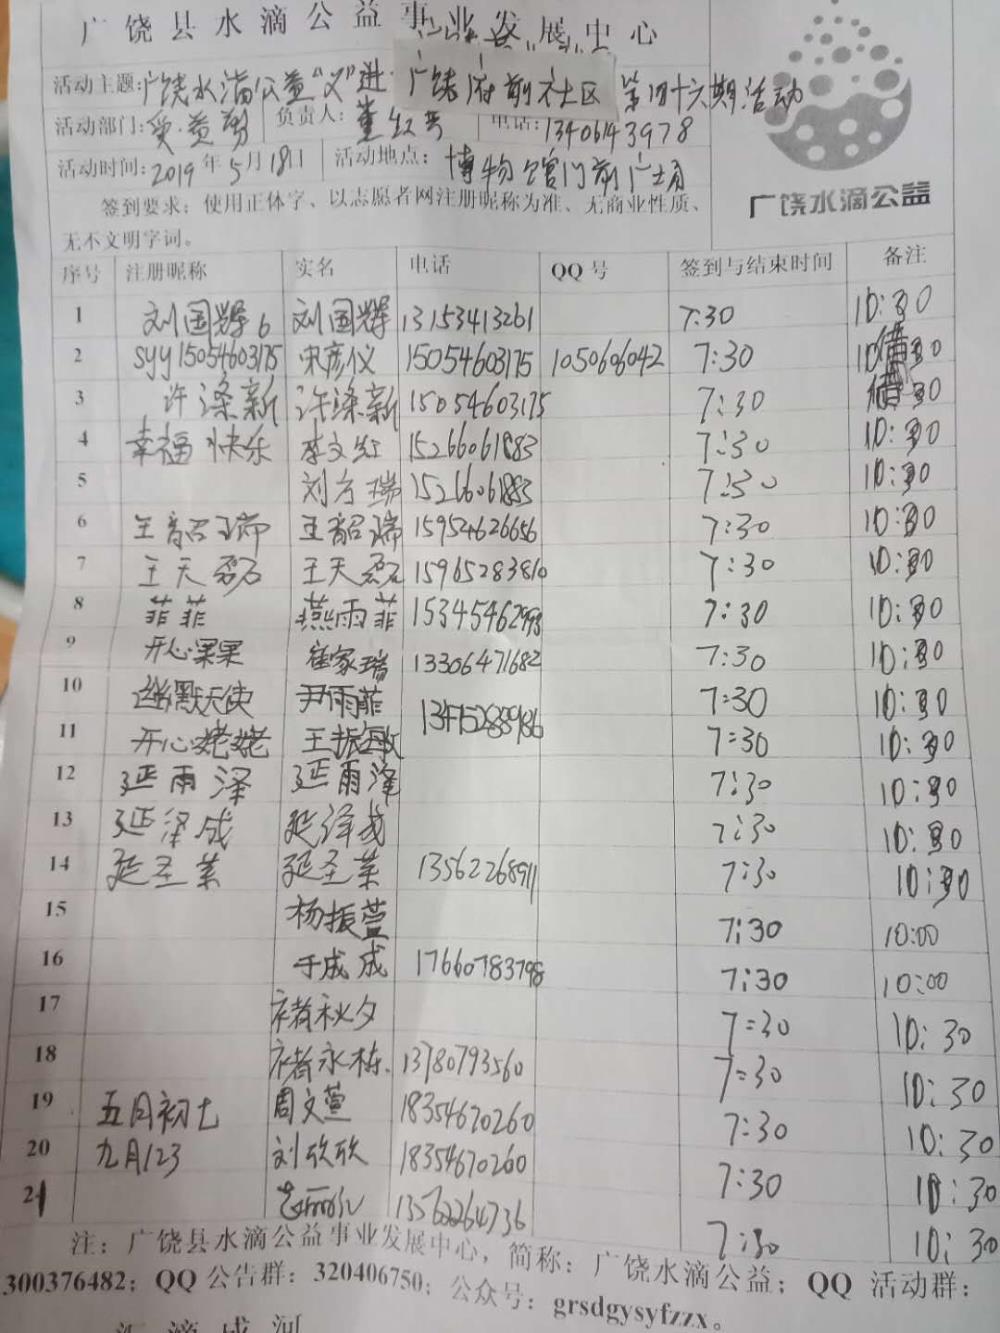 广饶县水滴公益事业发展中心
活动主题:广饶水滴公益"义"进 广饶府前社区 第四十六期活动
活动部门: 负责人:董红芳 电话:13406143978
活动时间:2019年5月18日 活动地点: 博物馆门前广场
签到要求:使用正体字、以志愿者网注册昵称为准、无商业性质、
无不文明字词。
广饶水滴公益
序号 注册昵称 实名 电话 QQ号 签到与结束时间 备注
1 刘国辉6 刘国辉 13153413261 7:30 10:30
2 syy15054603175 宋彦仪 15054603175 1050606042 7:30 10:30
3 许涤新 许涤新 15054603175 7:30 30
4 幸福快乐 李文红 15266061883 7:30 10:30
5 刘方瑞 15266061883 7:30 10:30
6 王韶瑞 王韶瑞 15954626656 7:30 10:30
7 王天磊 王天磊 15965283810 7:30 10:30
8 菲菲 燕雨菲 15345462993 7:30 10:30
9 开心果果 崔家瑞 13306471682 7:30 10:30
10 幽默天使 尹雨菲 7:30 10:30
13475288986
11 开心姥姥 王振敏 7:30 10:30
12 延雨泽 延雨泽 7:30 10:30
13 延泽成 延泽成 7:30 10:30
14 延圣莱 延圣莱 13562268911 7:30 10:30
15 杨振萱 7:30 10:00
16 于成成 17660783798 7:30 10:00
17 褚秋夕 7:30 10:30
18 褚永栋 13780793560 7:30 10:30
19 五月初七 周文萱 18354670260 7:30 10:30
20 九月123 刘欣欣 18354670260 7:30 10:30
21 13562264736 7:30 10:30
注:广饶县水滴公益事业发展中心,简称:广饶水滴公益;QQ活动群:
300376482;QQ公告群:320406750;公众号:grsdgysyfzzx。
汇滴成河